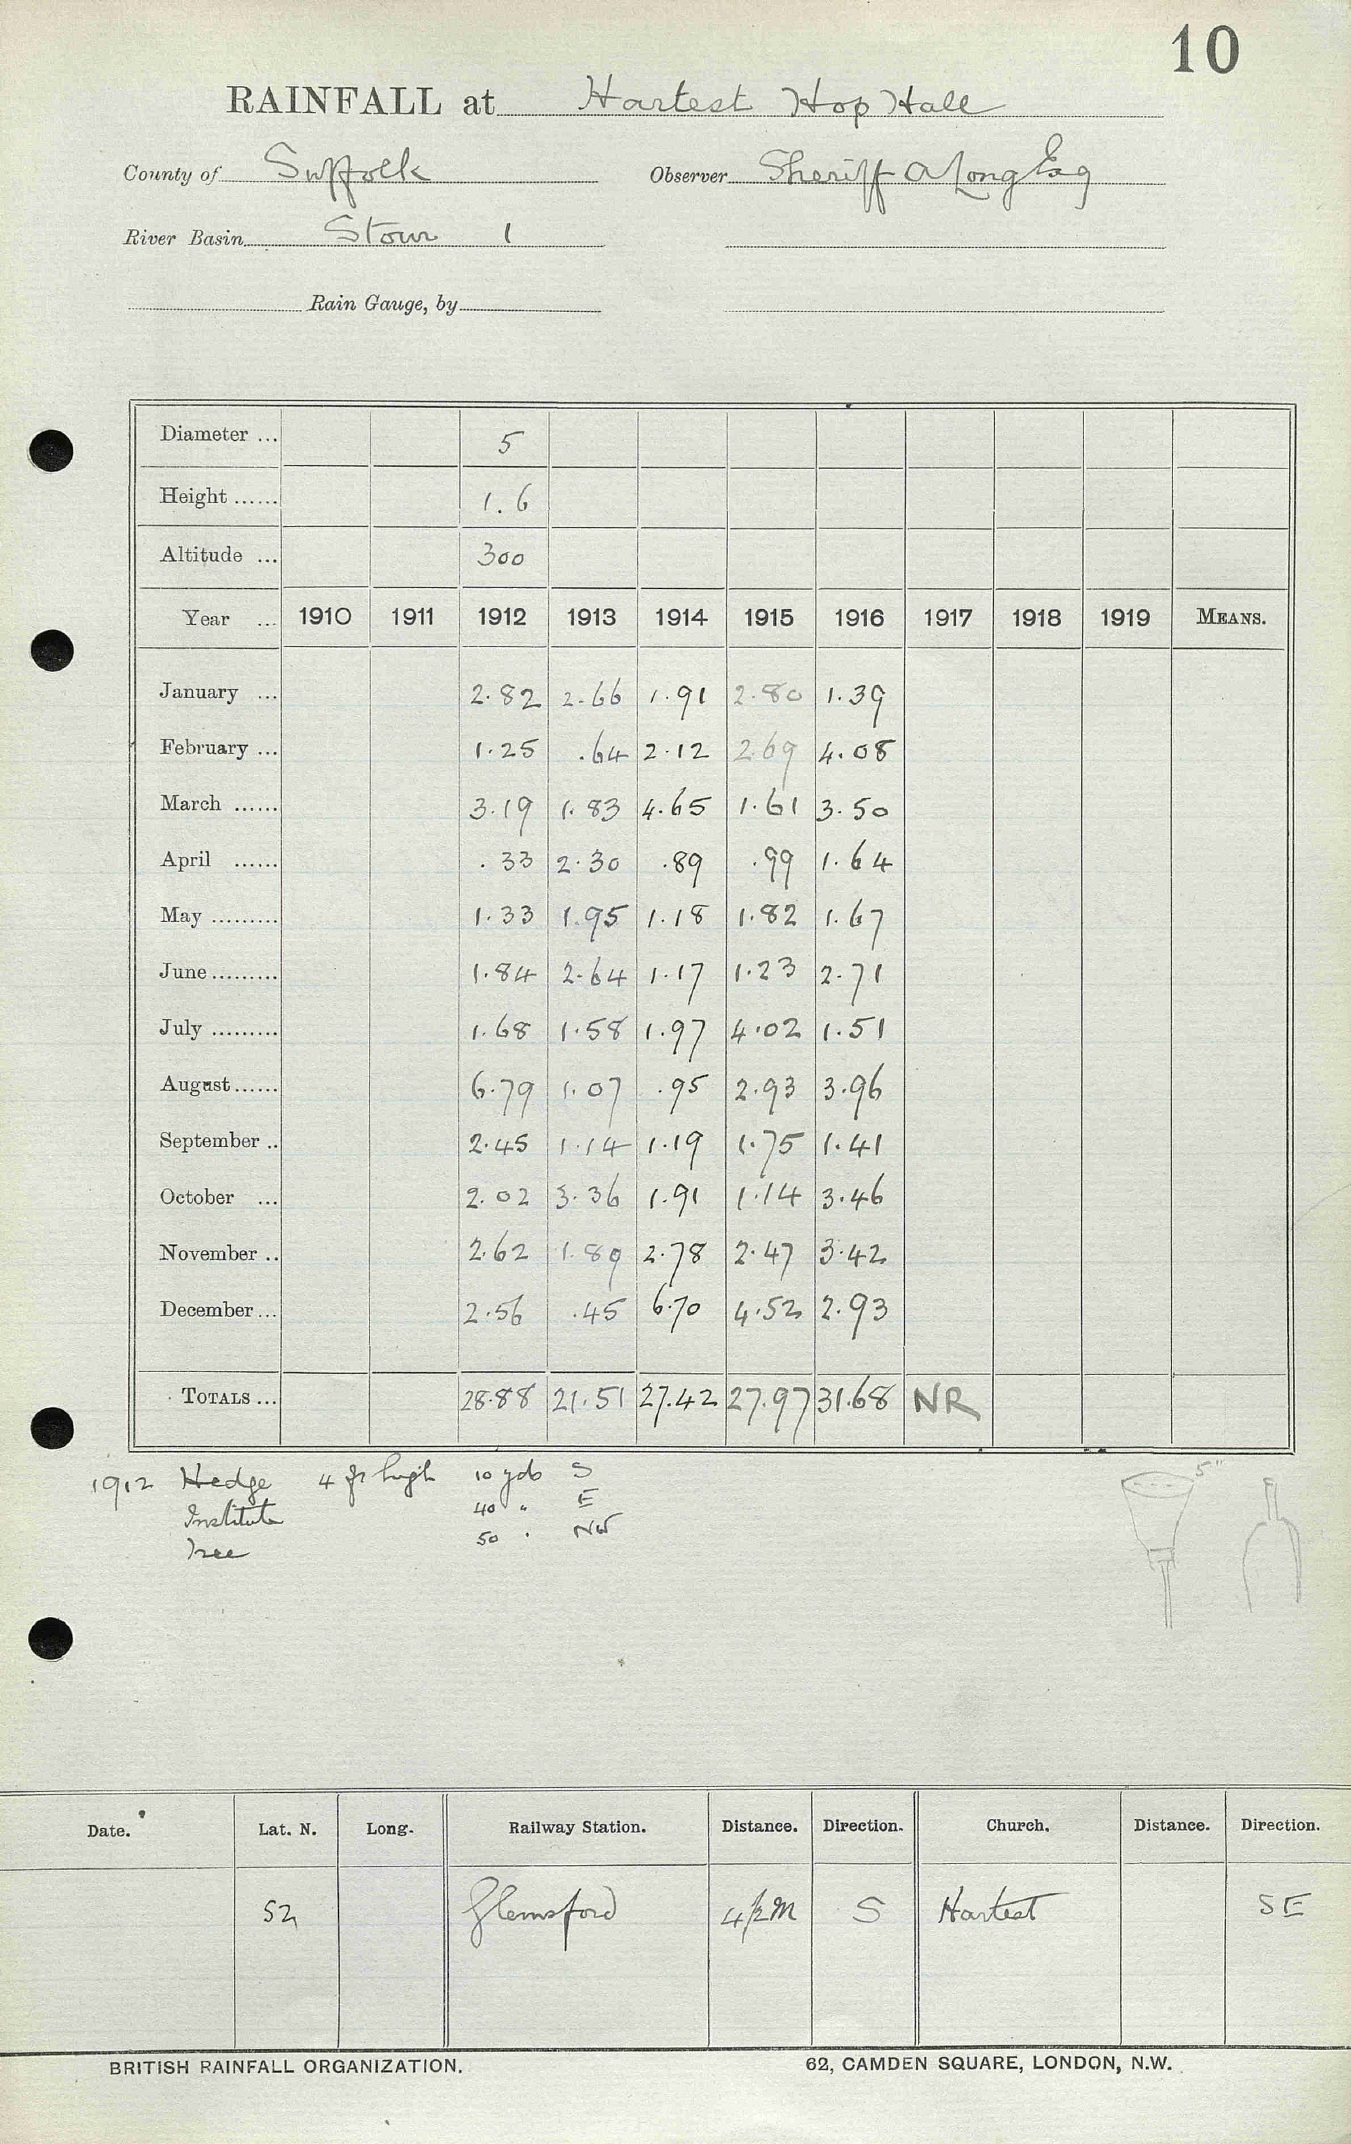 10
RAINFALL at Hartest Hop Hall
County of Suffolk Observer Sheriff A Long Esq
River Basin Stour 1
Rain Gauge, by
Diameter ... 5
Height ...... 1.6
Altitude ... 300
Year ... 1910 1911 1912 1913 1914 1915 1916 1917 1918 1919 MEANS.
January ... 2.82 2.66 1.91 2.80 1.39
February ... 1.25 .64 2.12 2.69 4.08
March ...... 3.19 1.83 4.65 1.61 3.50
April ...... .33 2.30 .89 .99 1.64
May ......... 1.33 1.95 1.18 1.82 1.67
June ......... 1.84 2.64 1.17 1.23 2.71
July ......... 1.68 1.58 1.97 4.02 1.51
August ...... 6.79 1.07 .95 2.93 3.96
September .. 2.45 1.14 1.19 1.75 1.41
October ... 2.02 3.36 1.91 1.14 3.46
November .. 2.62 1.89 2.78 2.47 3.42
December ... 2.56 .45 6.70 4.52 2.93
TOTALS ... 28.88 21.51 27.42 27.97 31.68 NR
1912 Hedge 4 ft high 10 yds S
Institute 40 " E
Tree 50 " NW
5"
Date. Lat. N. Long. Railway Station. Distance. Direction. Church. Distance. Direction.
52 Glemsford 4½ M S Hartest SE
BRITISH RAINFALL ORGANIZATION. 62, CAMDEN SQUARE, LONDON, N.W.